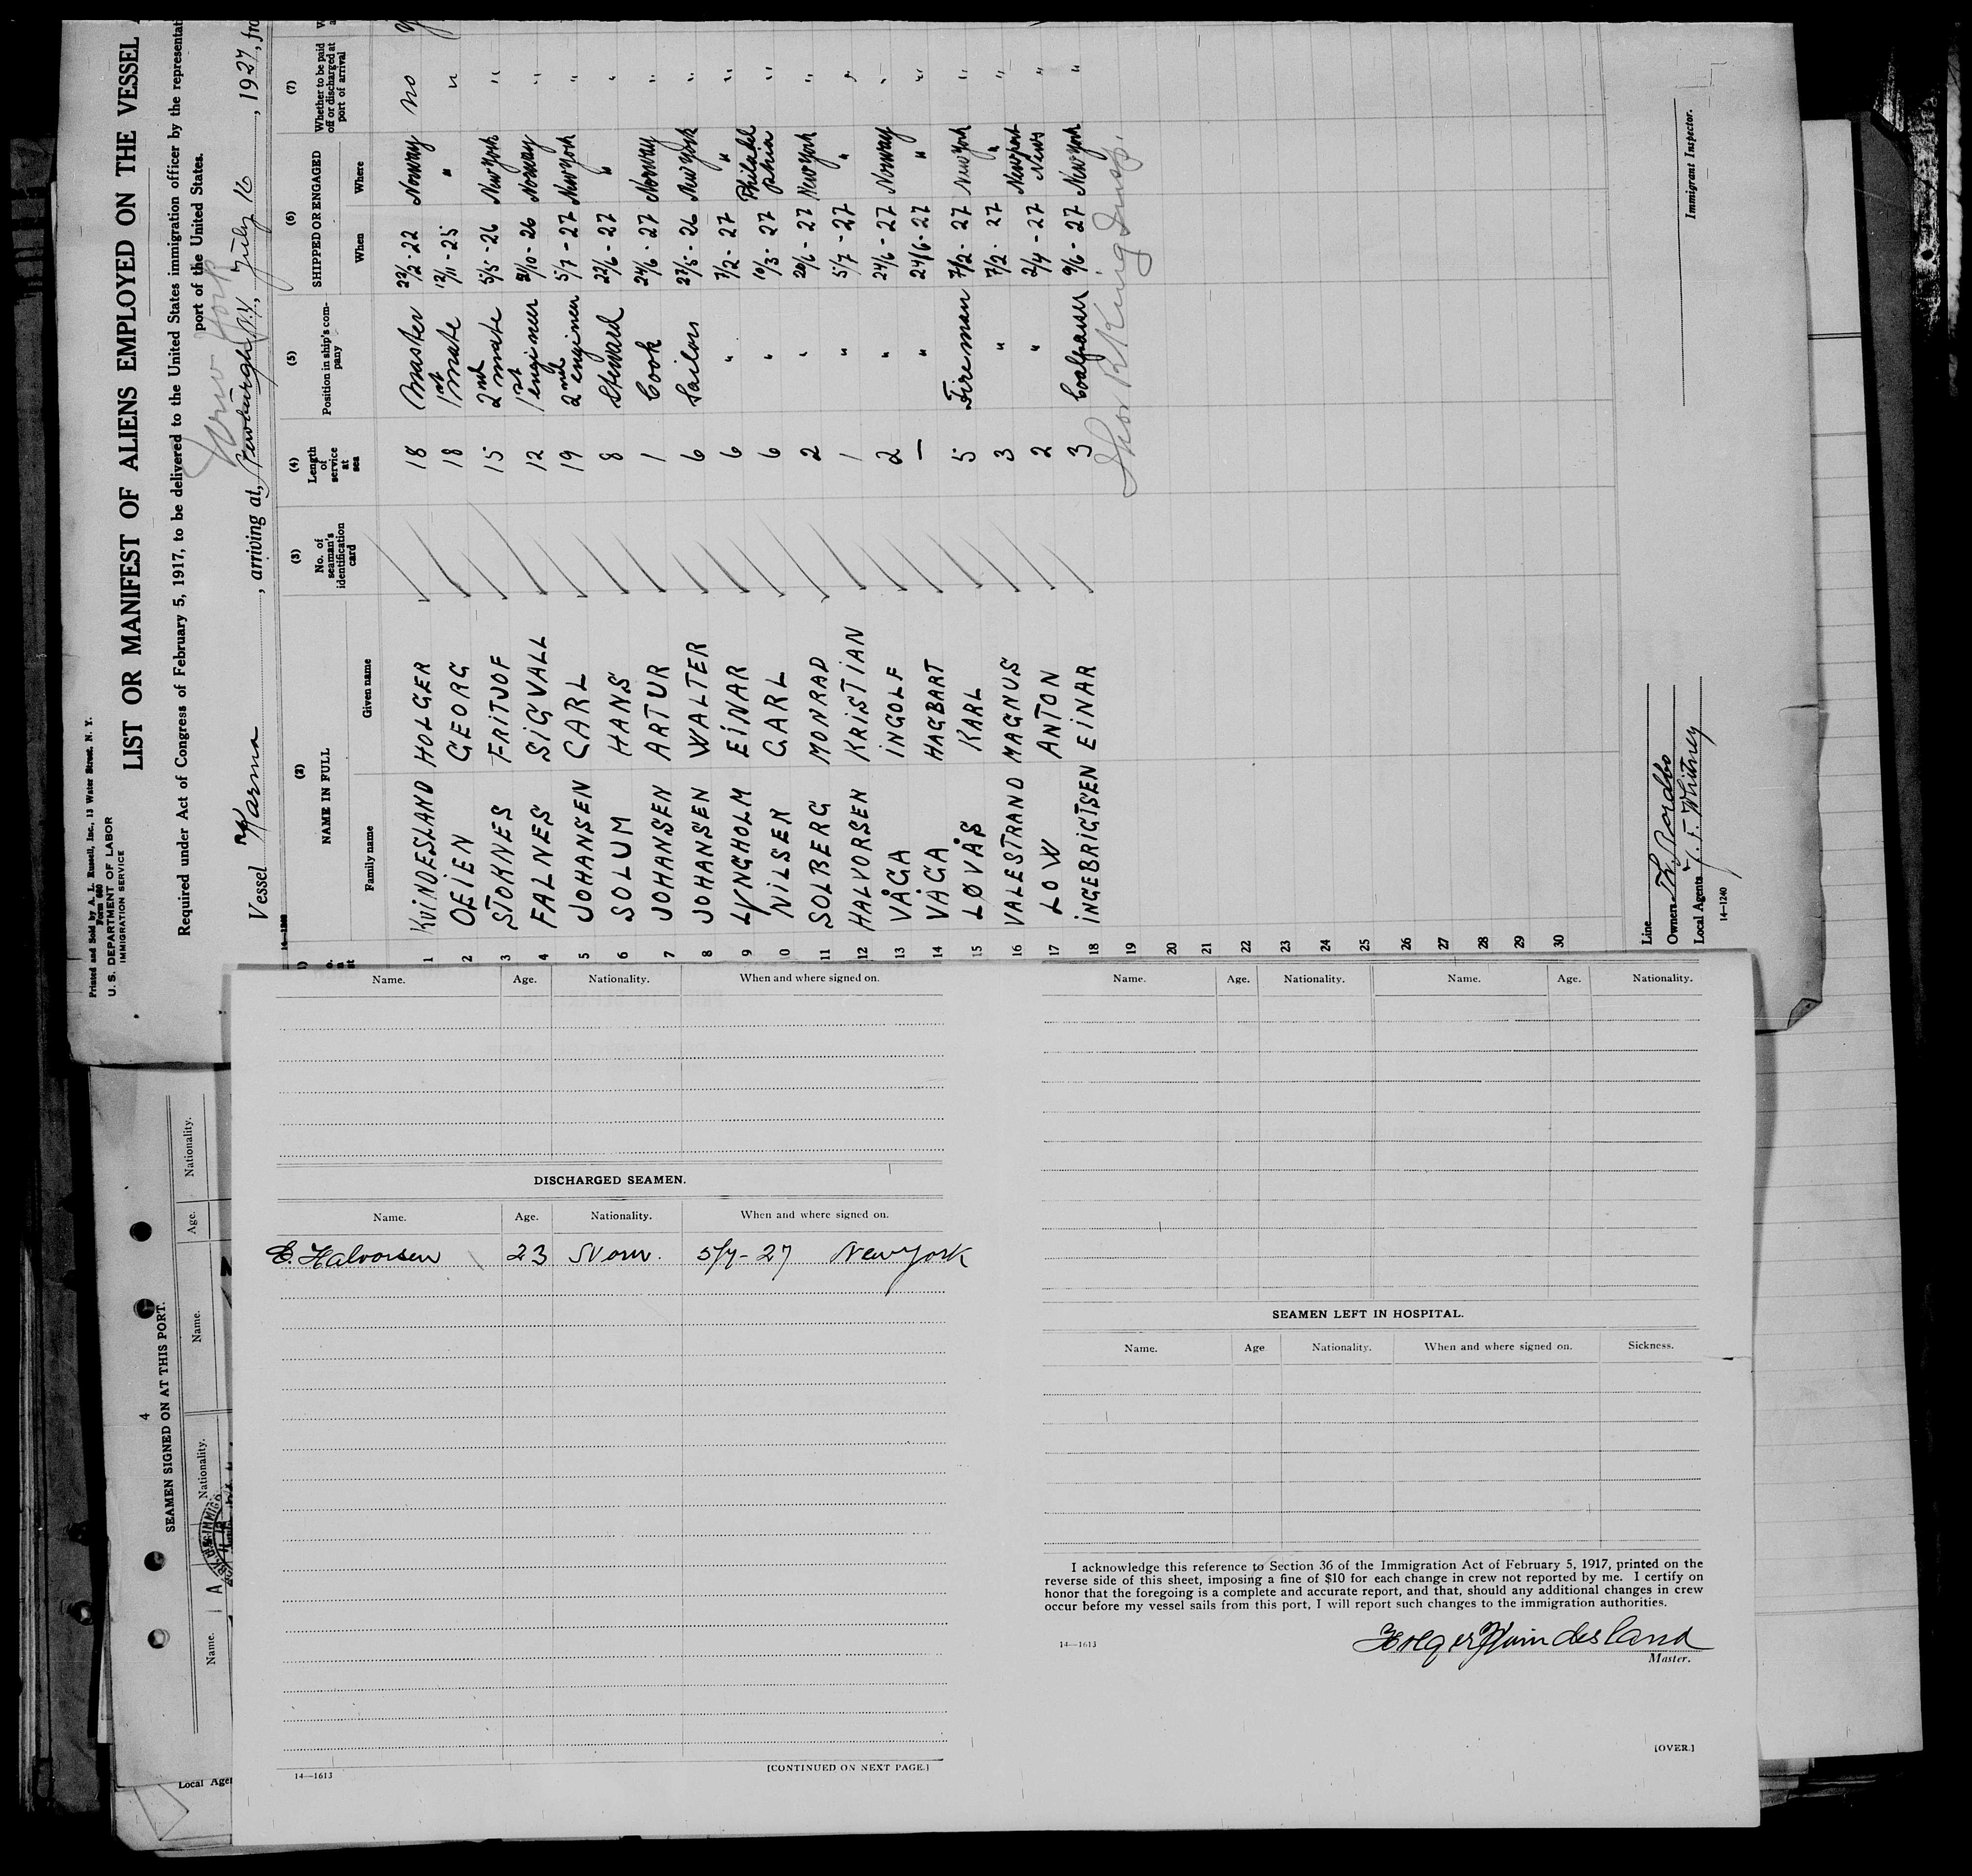 Printed and Sold by A. L. Russell, Inc., 13 Water Street, N. Y.
Form 680
U. S. DEPARTMENT OF LABOR
IMMIGRATION SERVICE
LIST OR MANIFEST OF ALIENS EMPLOYED ON THE VESSEL
Required under Act of Congress of February 5, 1917, to be delivered to the United States immigration officer by the representat
port of the United States.
New York
Vessel Karma, arriving at Newburgh N.Y., July 16, 1927, fro
(2) (3) (4) (5) (6) (7)
NAME IN FULL No. of seaman's identification card Length of service at sea Position in ship's company SHIPPED OR ENGAGED Whether to be paid off or discharged at port of arrival
Family name Given name When Where
1 KVINDESLAND HOLGER 18 Master 22/2-22 Norway no
2 OEIEN GEORG 18 1st mate 12/11-25 " "
3 STOKNES FRITJOF 15 2nd mate 5/5-26 New York "
4 FALNES SIGVALL 12 1st engineer /10-26 Norway "
5 JOHANSEN CARL 19 2nd engineer 5/7-27 New York "
6 SOLUM HANS 8 Steward 22/6-27 " "
7 JOHANSEN ARTUR 1 Cook 24/6-27 Norway "
8 JOHANSEN WALTER 6 Sailor 27/5-26 New York "
9 LYNGHOLM EINAR 6 " 7/2-27 " "
10 NILSEN CARL 6 " 10/3-27 Philadelphia "
11 SOLBERG MONRAD 2 " 20/6-27 New York "
12 HALVORSEN KRISTIAN 1 " 5/7-27 " "
13 VÅGA INGOLF 2 " 24/6-27 Norway "
14 VÅGA HAGBART — " 24/6-27 " "
15 LØVÅS KARL 5 Fireman 7/2-27 New York "
16 VALESTRAND MAGNUS 3 " 7/2-27 " "
17 LOW ANTON 2 " 2/4-27 Newport News "
18 INGEBRIGTSEN EINAR 3 9/6-27 New York "
19
20
21
22
23
24
25
26
27
28
29
30
Line
Owners
Local Agents J. F. Whitney
14—1240
Immigrant Inspector.
4
SEAMEN SIGNED ON AT THIS PORT.
Name. Nationality. Name. Age. Nationality.
Local Age
Name. Age. Nationality. When and where signed on.
DISCHARGED SEAMEN.
Name. Age. Nationality. When and where signed on.
E. Halvorsen 23 Norw. 5/7-27 New York
14—1613 [CONTINUED ON NEXT PAGE.]
Name. Age. Nationality. Name. Age. Nationality.
SEAMEN LEFT IN HOSPITAL.
Name. Age Nationality. When and where signed on. Sickness.
I acknowledge this reference to Section 36 of the Immigration Act of February 5, 1917, printed on the
reverse side of this sheet, imposing a fine of $10 for each change in crew not reported by me. I certify on
honor that the foregoing is a complete and accurate report, and that, should any additional changes in crew
occur before my vessel sails from this port, I will report such changes to the immigration authorities.
Holger Kvindesland
14—1613 Master.
[OVER.]